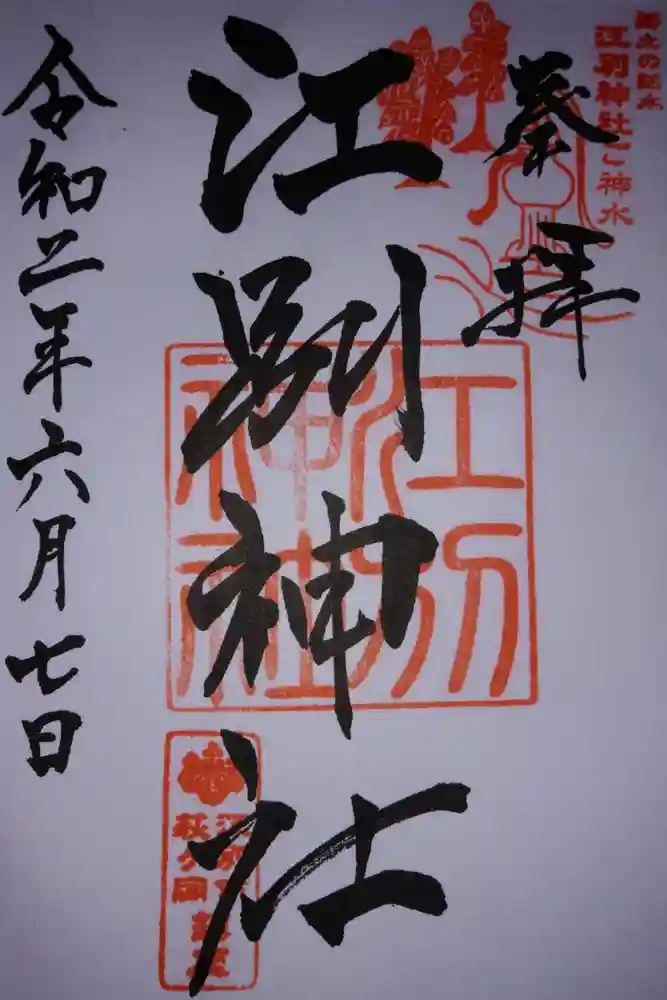 江別神社ご神水
奉拝
江別神社
江別
神社
令和二年六月七日